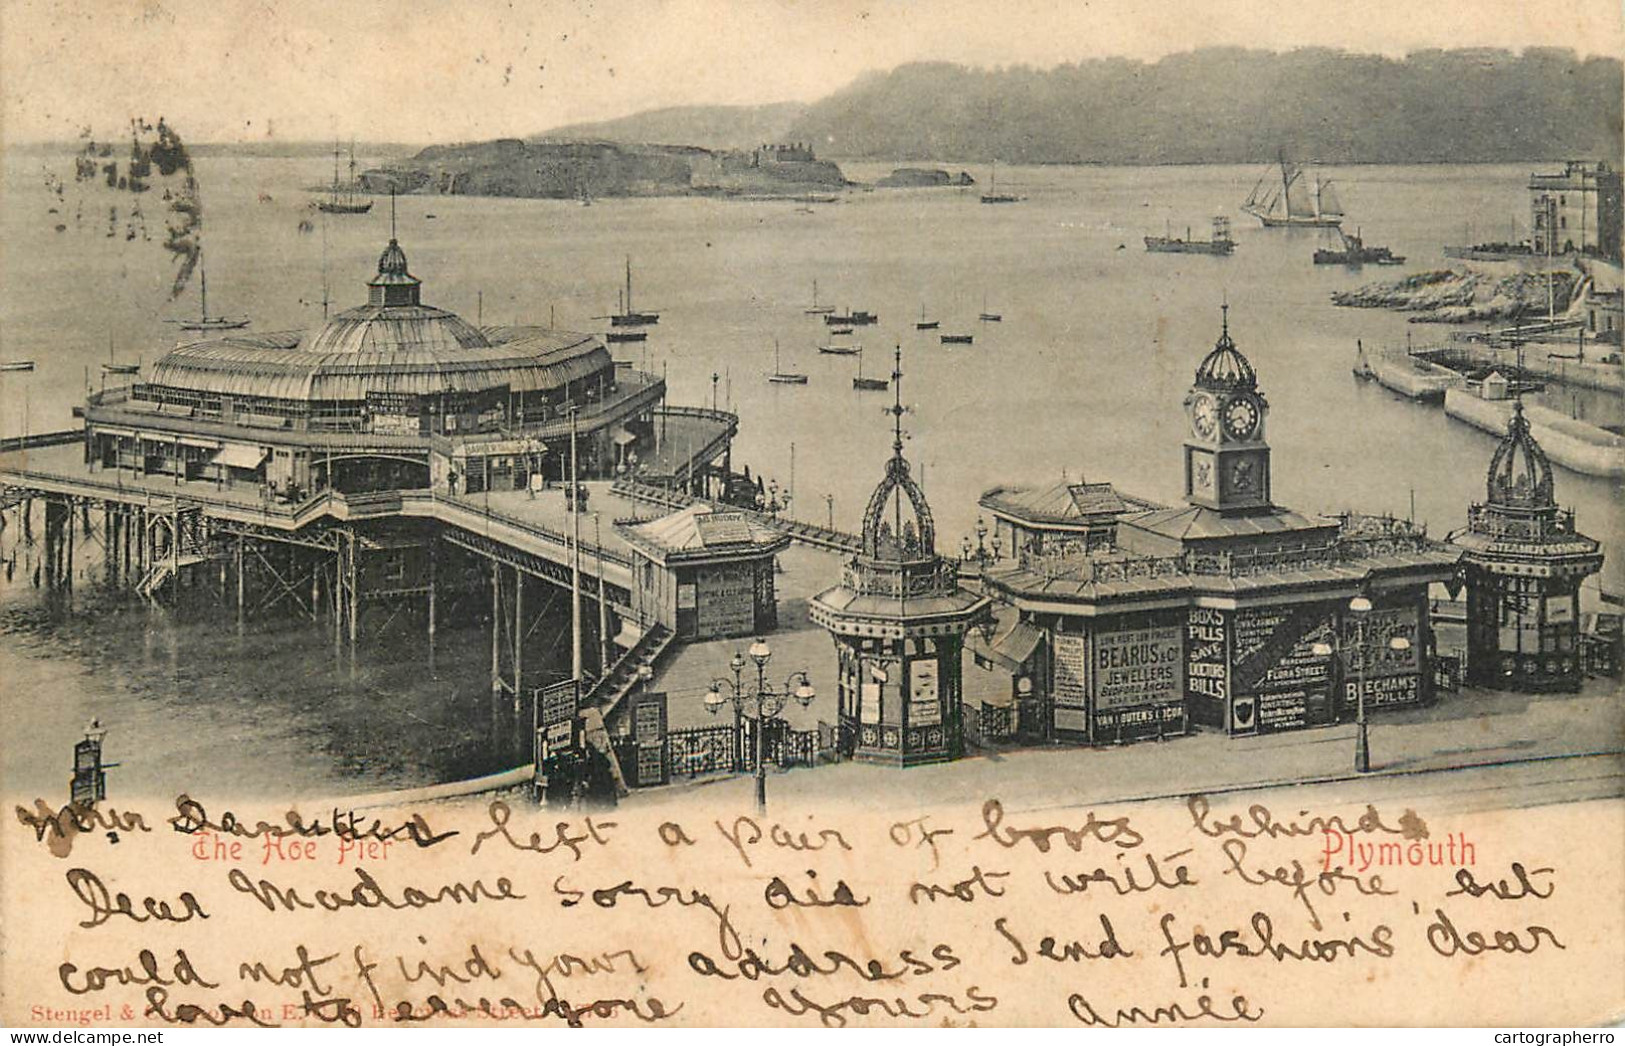 McRUDDY
BEARUS & Co
JEWELLERS
BEDFORD ARCADE
VAN HOUTEN'S COCOA
BOX'S
PILLS
SAVE
DOCTORS
BILLS
FLORA STREET
BEECHAM'S
PILLS
left a pair of boots behind
The Hoe Pier
Plymouth
Dear Madame sorry did not write before but
could not find your address Send fashions dear
love to everyone yours Année
Stengel & Co London E.C.
delcampe.net
cartographerro